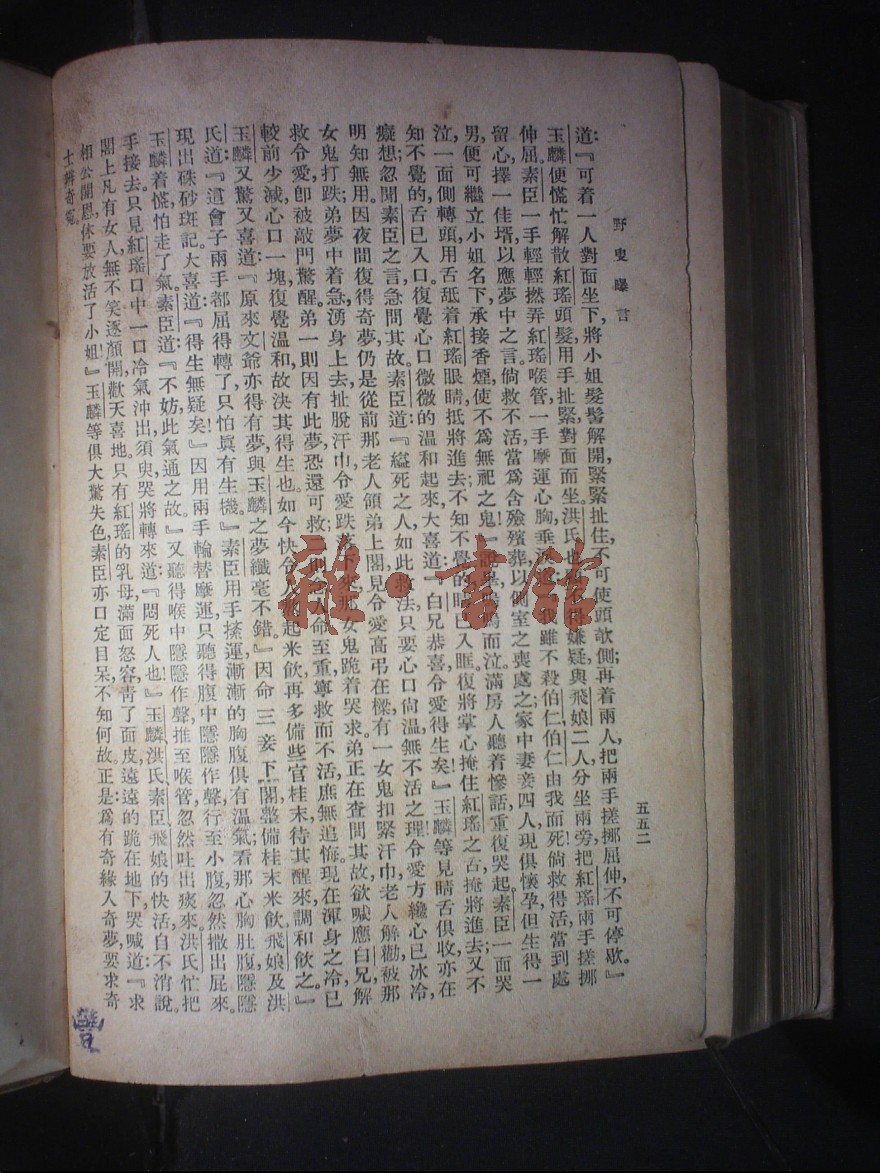 野叟曝言
五五二
道：『可着一人對面坐下，將小姐髮髻解開，緊緊扯住，不可使頭欹側；再着兩人，把兩手搓挪屈伸，不可停歇。』
玉麟便慌忙解散紅瑤頭髮，用手扯緊，對面而坐。洪氏也嫌疑，與飛娘二人分坐兩旁，把紅瑤兩手搓挪
伸屈。素臣一手輕輕撚弄紅瑤喉管，一手摩運心胸，垂雖不殺伯仁，伯仁由我而死！倘救得活，當到處
留心，擇一佳壻，以應夢中之言。倘救不活，當爲含殮殯葬，以側室之喪處之；家中妻妾四人，現俱懷孕，但生得一
男，便可繼立小姐名下，承接香煙，使不爲無祀之鬼！』而泣。滿房人聽着慘話，重復哭起。素臣一面哭
泣，一面側轉頭，用舌舐着紅瑤眼睛，抵將進去；不知不覺的睛已入眶。復將掌心掩住紅瑤之舌，掩將進去；又不
知不覺的，舌已入口。復覺心口微微的温和起來，大喜道：『白兄恭喜，令愛得生矣！』玉麟等見睛舌俱收，亦在
癡想；忽聞素臣之言，急問其故。素臣道：『縊死之人，如此救法，只要心口尙温，無不活之理。令愛方纔心已冰冷，
明知無用。因夜間復得奇夢，仍是從前那老人領弟上閣，見令愛高弔在樑，有一女鬼扣緊汗巾，老人解勸，被那
女鬼打跌；弟夢中着急，湧身上去，扯脫汗巾，令愛跌下來，那女鬼跪着哭求。弟正在查問其故，欲喊應白兄，解
救令愛，卽被敲門驚醒。弟一則因有此夢，恐還可救；則人命至重，寧救而不活，庶無追悔。現在渾身之冷，已
較前少減，心口一塊，復覺温和，故決其得生也。如今快令人起米飲，再多備些官桂末，待其醒來，調和飲之。』
玉麟又驚又喜道：『原來文爺亦得有夢，與玉麟之夢，纖毫不錯。』因命三妾下閣，整備桂末米飲。飛娘及洪
氏道：『這會子兩手都屈得轉了，只怕眞有生機。』素臣用手搽運，漸漸的胸腹俱有温氣，看那心胸肚腹，隱隱
現出硃砂斑記。大喜道：『得生無疑矣！』因用兩手輪替摩運，只聽得腹中隱隱作聲，行至小腹，忽然撒出屁來。
玉麟着慌怕走了氣。素臣道：『不妨，此氣通之故。』又聽得喉中隱隱作聲，推至喉管，忽然吐出痰來，洪氏忙把
手接去。只見紅瑤口中一口冷氣沖出，須臾哭將轉來道：『悶死人也！』玉麟洪氏素臣飛娘的快活，自不消說。
閣上凡有女人，無不笑逐顏開，歡天喜地。只有紅瑤的乳母，滿面怒容，靑了面皮，遠遠的跪在地下，哭喊道：『求
相公開恩，休要放活了小姐！』玉麟等俱大驚失色，素臣亦口定目呆，不知何故。正是：爲有奇緣入奇夢，要求奇
士辨奇冤。
雜·書館